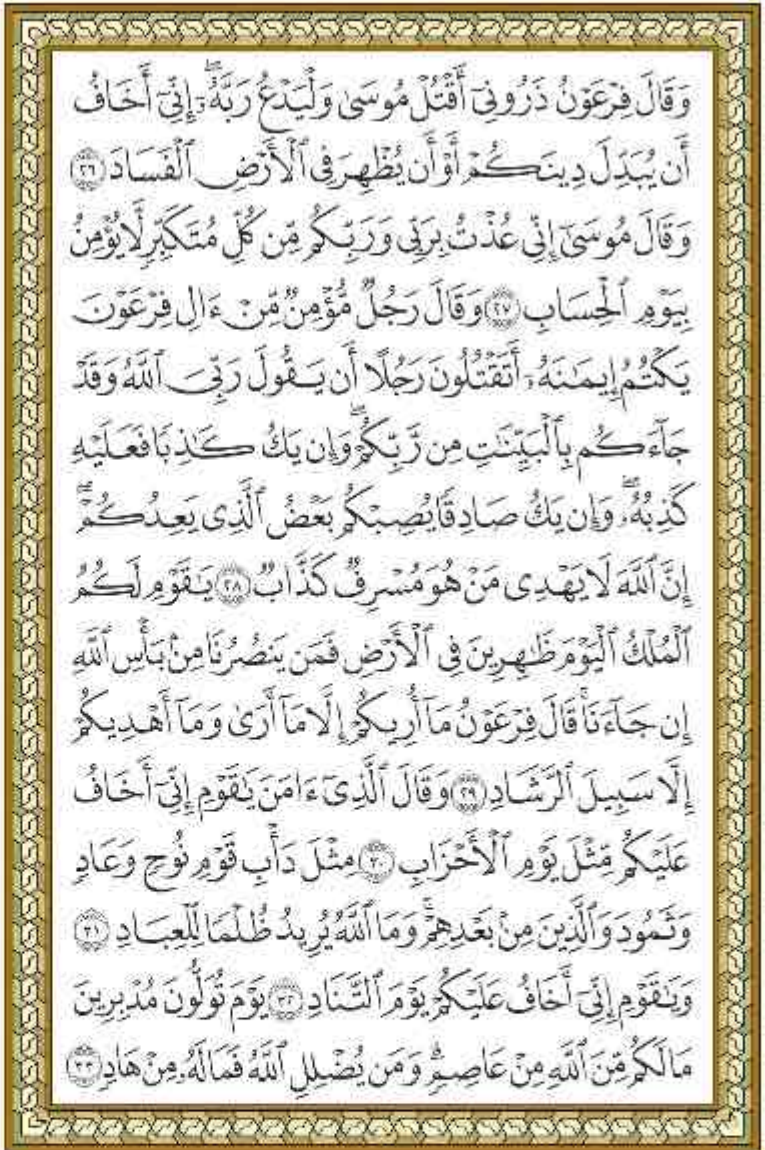 وَقَالَ فِرْعَوْنُ ذَرُونِىٓ أَقْتُلْ مُوسَىٰ وَلْيَدْعُ رَبَّهُۥٓ ۖ إِنِّىٓ أَخَافُ
أَن يُبَدِّلَ دِينَكُمْ أَوْ أَن يُظْهِرَ فِى ٱلْأَرْضِ ٱلْفَسَادَ ٢٦
وَقَالَ مُوسَىٰٓ إِنِّى عُذْتُ بِرَبِّى وَرَبِّكُم مِّن كُلِّ مُتَكَبِّرٍ لَّا يُؤْمِنُ
بِيَوْمِ ٱلْحِسَابِ ٢٧ وَقَالَ رَجُلٌ مُّؤْمِنٌ مِّنْ ءَالِ فِرْعَوْنَ
يَكْتُمُ إِيمَـٰنَهُۥٓ أَتَقْتُلُونَ رَجُلًا أَن يَقُولَ رَبِّىَ ٱللَّهُ وَقَدْ
جَآءَكُم بِٱلْبَيِّنَـٰتِ مِن رَّبِّكُمْ ۖ وَإِن يَكُ كَـٰذِبًا فَعَلَيْهِ
كَذِبُهُۥ ۖ وَإِن يَكُ صَادِقًا يُصِبْكُم بَعْضُ ٱلَّذِى يَعِدُكُمْ ۖ
إِنَّ ٱللَّهَ لَا يَهْدِى مَنْ هُوَ مُسْرِفٌ كَذَّابٌ ٢٨ يَـٰقَوْمِ لَكُمُ
ٱلْمُلْكُ ٱلْيَوْمَ ظَـٰهِرِينَ فِى ٱلْأَرْضِ فَمَن يَنصُرُنَا مِنۢ بَأْسِ ٱللَّهِ
إِن جَآءَنَا ۚ قَالَ فِرْعَوْنُ مَآ أُرِيكُمْ إِلَّا مَآ أَرَىٰ وَمَآ أَهْدِيكُمْ
إِلَّا سَبِيلَ ٱلرَّشَادِ ٢٩ وَقَالَ ٱلَّذِىٓ ءَامَنَ يَـٰقَوْمِ إِنِّىٓ أَخَافُ
عَلَيْكُم مِّثْلَ يَوْمِ ٱلْأَحْزَابِ ٣٠ مِثْلَ دَأْبِ قَوْمِ نُوحٍ وَعَادٍ
وَثَمُودَ وَٱلَّذِينَ مِنۢ بَعْدِهِمْ ۚ وَمَا ٱللَّهُ يُرِيدُ ظُلْمًا لِّلْعِبَادِ ٣١
وَيَـٰقَوْمِ إِنِّىٓ أَخَافُ عَلَيْكُمْ يَوْمَ ٱلتَّنَادِ ٣٢ يَوْمَ تُوَلُّونَ مُدْبِرِينَ
مَا لَكُم مِّنَ ٱللَّهِ مِنْ عَاصِمٍ ۗ وَمَن يُضْلِلِ ٱللَّهُ فَمَا لَهُۥ مِنْ هَادٍ ٣٣